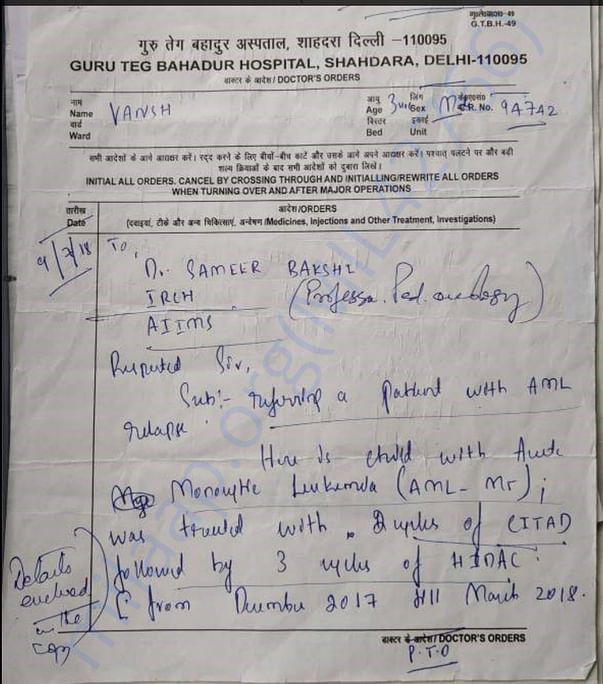 G.T.B.H.-49
गुरु तेग बहादुर अस्पताल, शाहदरा दिल्ली –110095
GURU TEG BAHADUR HOSPITAL, SHAHDARA, DELHI-110095
डाक्टर के आदेश / DOCTOR'S ORDERS
नाम
Name VANSH
आयु
Age 3
लिंग
Sex
C.R. No. 94742
वार्ड
Ward
बिस्तर
Bed
इकाई
Unit
सभी आदेशों के आगे आद्यक्षर करें। रद्द करने के लिए बीचों-बीच काटें और उसके आगे अपने आद्यक्षर करें। पश्चात् पलटने पर और बड़ी
शल्य क्रियाओं के बाद सभी आदेशों को दुबारा लिखें।
INITIAL ALL ORDERS. CANCEL BY CROSSING THROUGH AND INITIALLING/REWRITE ALL ORDERS
WHEN TURNING OVER AND AFTER MAJOR OPERATIONS
तारीख
Date
आदेश/ORDERS
(दवाइयां, टीके और अन्य चिकित्साएं, अन्वेषण/Medicines, Injections and Other Treatment, Investigations)
9/7/18
To,
Dr. SAMEER BAKSHI
IRCH (Professor. Ped. oncology)
AIIMS
Respected Sir,
Sub:- referring a patient with AML
relapse
Here is child with Acute
Monocytic Leukemia (AML-M5);
was treated with 2 cycles of
followed by 3 cycles of HIDAC.
from December 2017 till March 2018.
Details
enclosed
in the
copy
डाक्टर के आदेश/DOCTOR'S ORDERS
P.T.O